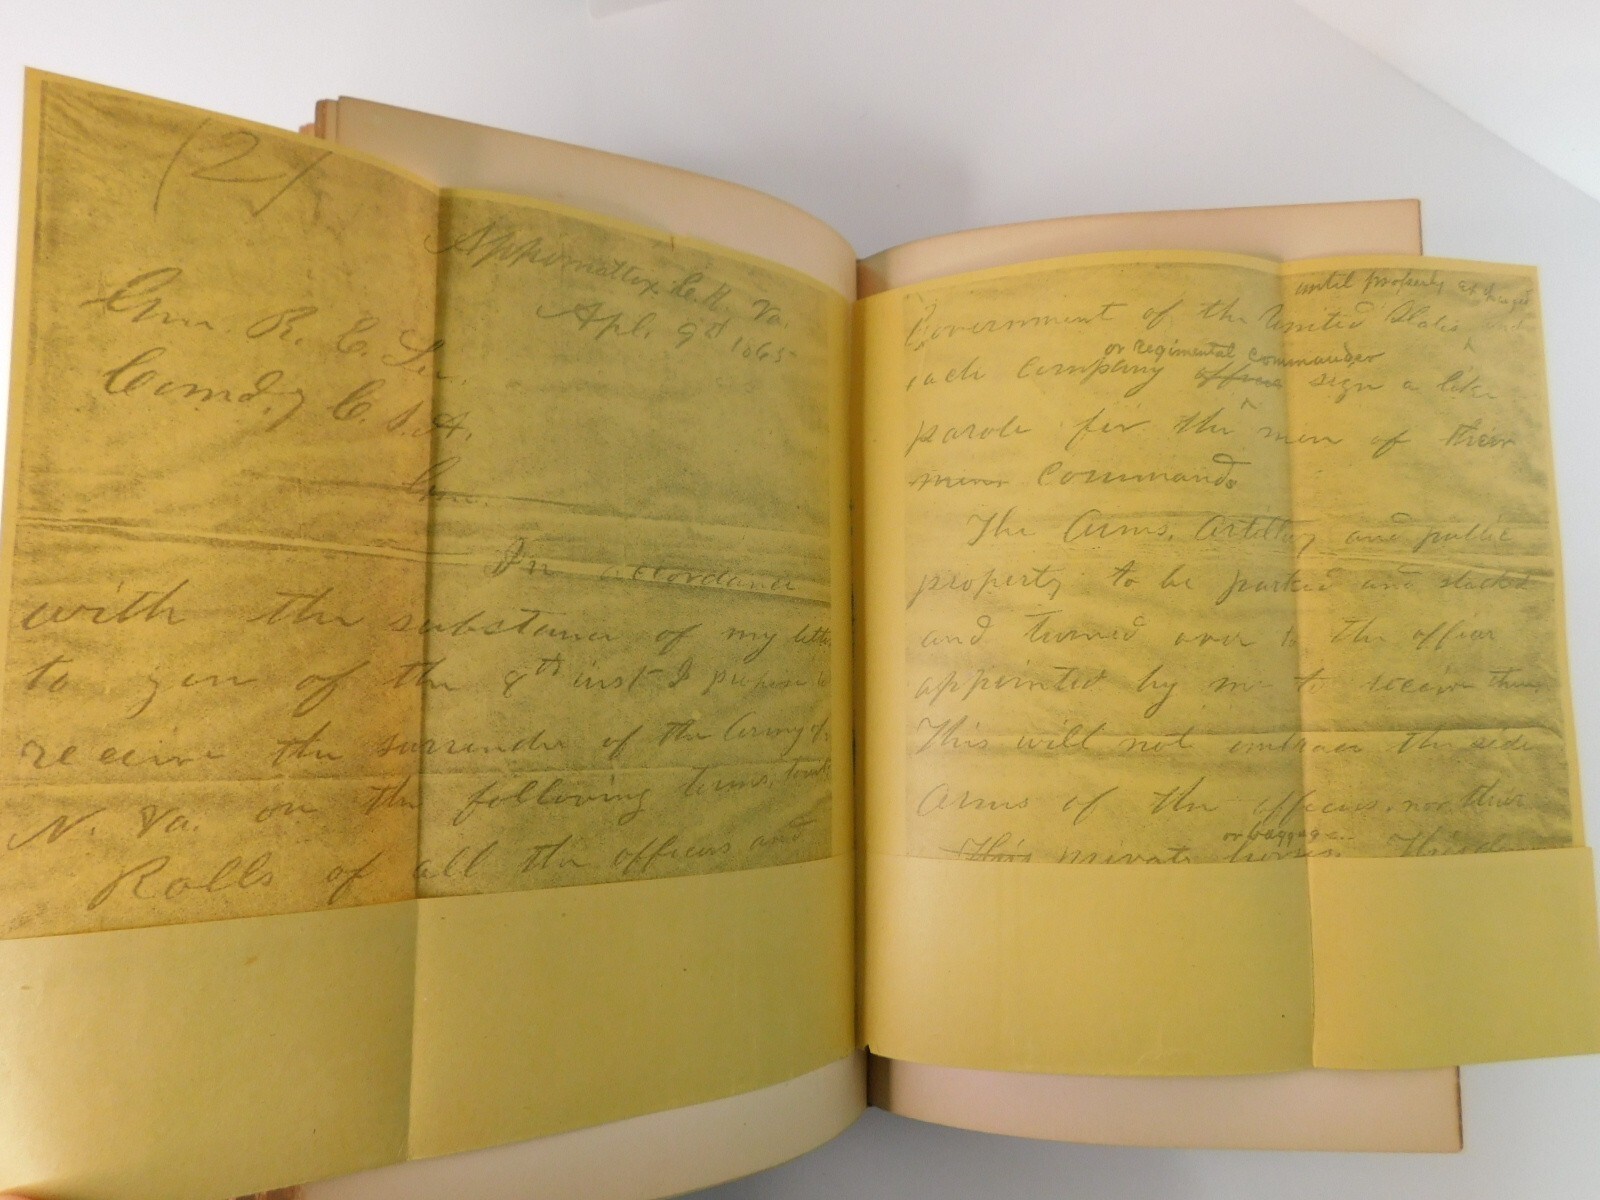 (2)
Appomattox C. H. Va.
Apl. 9th 1865
Gen. R. E. Lee,
Comd.g C. S. A.
Gen.
In accordance
with the substance of my letter
to you of the 8th inst I propose to
receive the surrender of the Army of
N. Va. on the following terms, towit:
Rolls of all the officers and
until properly exchanged
Government of the United States and
or regimental commander
each company officer sign a like
parole for the men of their
commands
The Arms, Artillery and public
property to be parked and stacked
and turned over to the officer
appointed by me to receive them
This will not embrace the side
Arms of the officers, nor their
or baggage.
This private horses